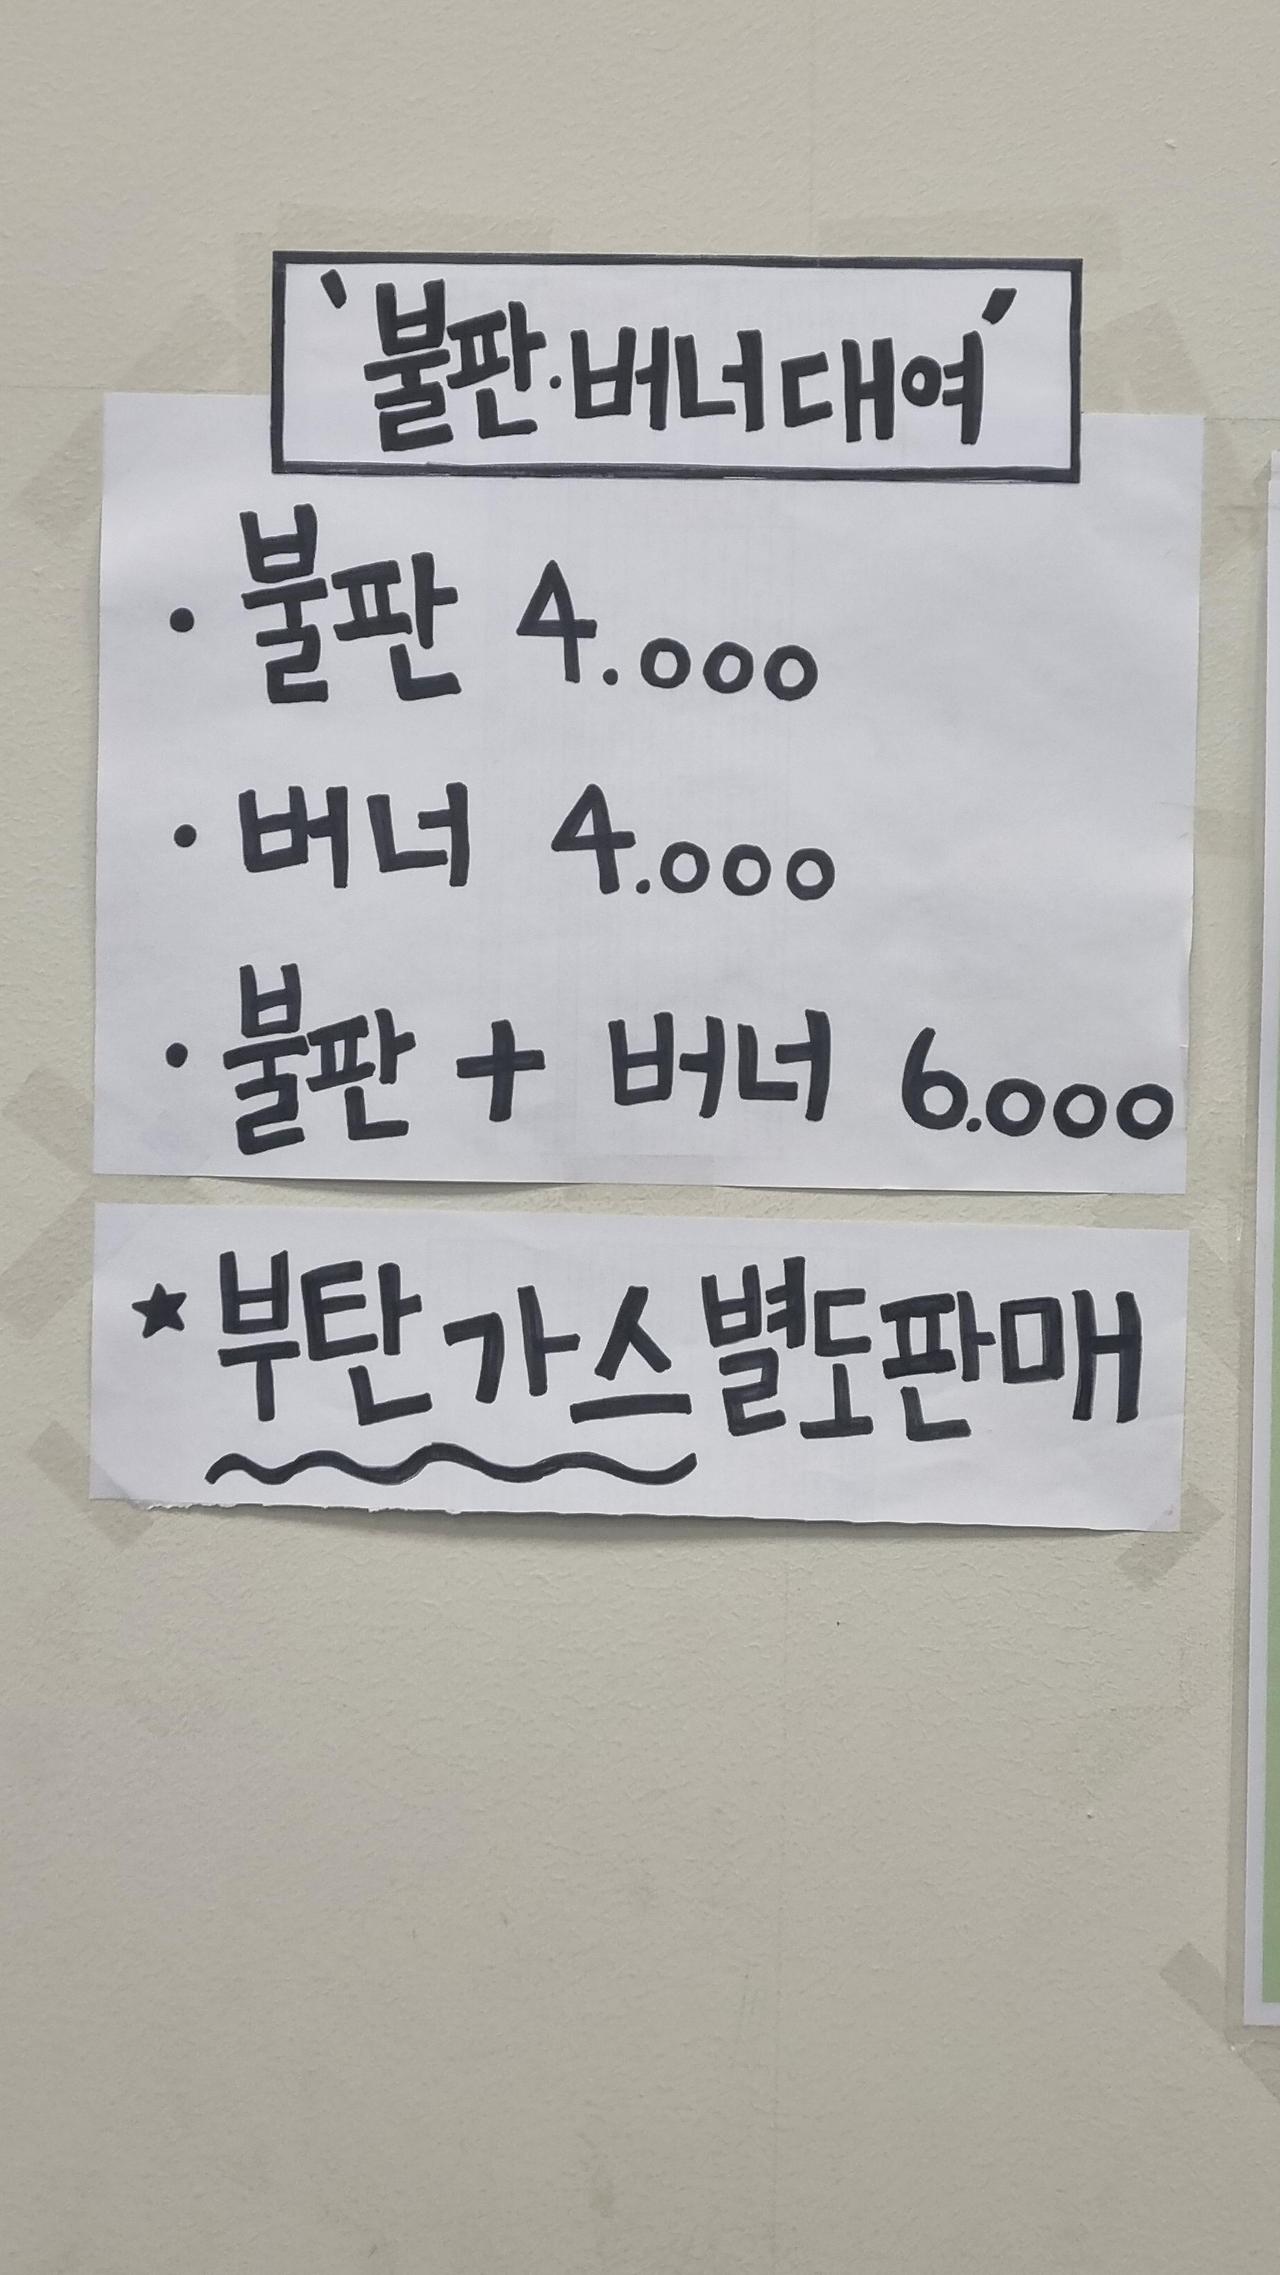 '불판·버너대여'
• 불판 4.000
• 버너 4.000
• 불판 + 버너 6.000
★ 부탄가스별도판매